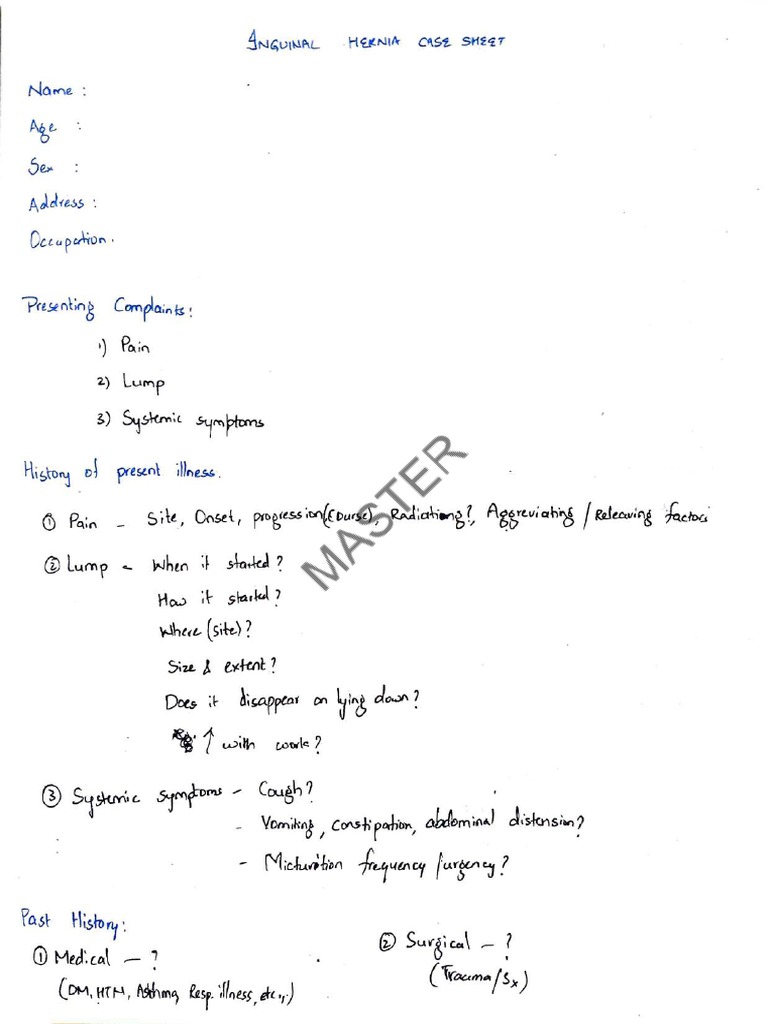 INGUINAL HERNIA CASE SHEET
Name :
Age :
Sex :
Address :
Occupation.
Presenting Complaints:
1) Pain
2) Lump
3) Systemic symptoms
History of present illness.
① Pain - Site, Onset, progression (Course), Radiating?, Aggreviating / Releaving factors
② Lump - When it started?
How it started?
Where (site)?
Size & extent?
Does it disappear on lying down?
↑ with work?
③ Systemic symptoms - Cough?
- Vomiting, constipation, abdominal distension?
- Micturition frequency /urgency?
Past History:
① Medical - ?
② Surgical - ?
(DM, HTN, Asthma, Resp. illness, etc.,.)
(Trauma/Sx)
MASTER